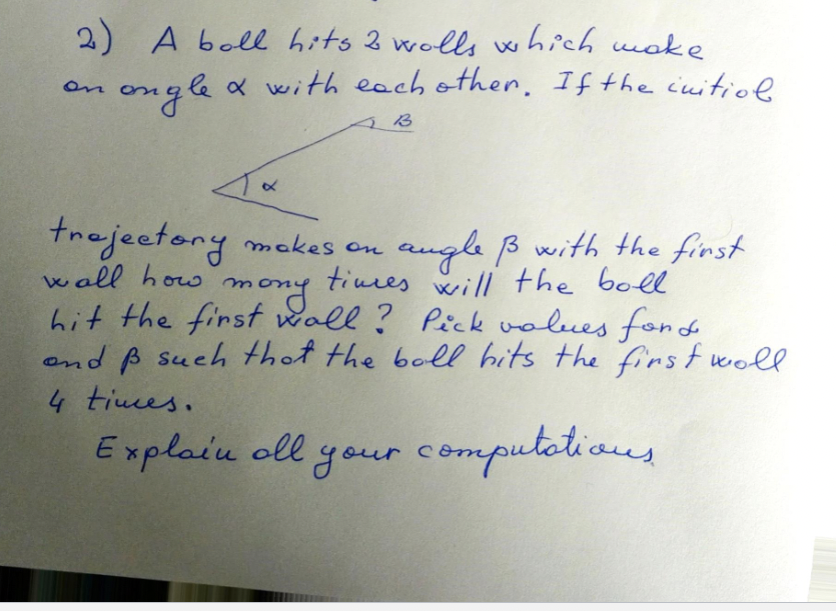 2) A ball hits 2 walls which make
an angle α with each other. If the initial
β
α
trajectory makes an angle β with the first
wall how many times will the ball
hit the first wall? Pick values for α
and β such that the ball hits the first wall
4 times.
Explain all your computations.